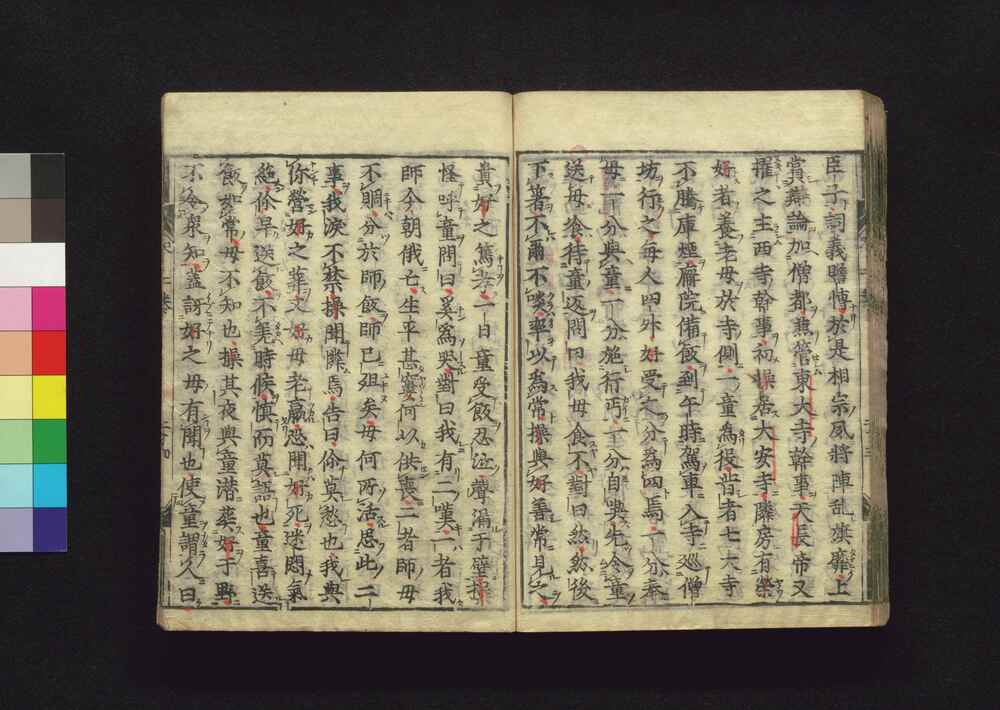 臣子詞義贍博於是相宗風將陣乱旗靡上
賞辯論加僧都兼管東大寺幹事天長帝又
擢之主西寺幹事初操居大安寺隣房有榮
好者養老母於寺側一童為役昔者七大寺
不騰庫煙廨院備飯到午時駕車入寺巡僧
坊行之每人四外好受之分為四焉一分奉
母一分與童一分施行丐一分自喫先令童
送母飡待童返問曰我母食不對曰然然後
下箸不爾不啖率以為常操與好善常見久
貴好之篤孝一日童受飯忍泣聲漏于壁操
怪呼童問曰奚為哭對曰我有二嘆一者我
師今朝俄亡生平甚窶何以供喪二者師母
不賙分於師飯師已殂矣母何所活思此二
事我淚不禁操聞隣焉告曰你莫愁也我與
你營好之葬又好母老羸恐聞好死迷悶氣
絶你早送飯不差時候慎而莫語也童喜送
飯如常母不知也操其夜與童潛葬好于野
不令衆知蓋訝好之母有聞也使童謂人曰